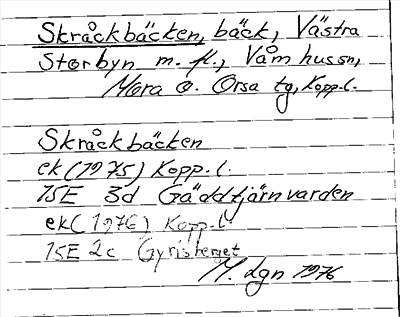 Skråckbäcken, bäck, Västra
Storbyn m. fl., Våmhussn,
Mora o. Orsa tg, Kopp.l.
Skråckbäcken
ek (1975) Kopp.l.
15E 3d Gäddtjärnvarden
ek (1976) Kopp.l
15E 2c Gyrisberget
M. Lgn 1976